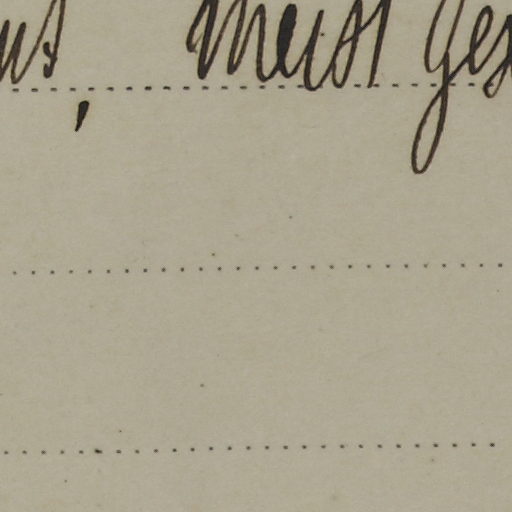 us, meist ges